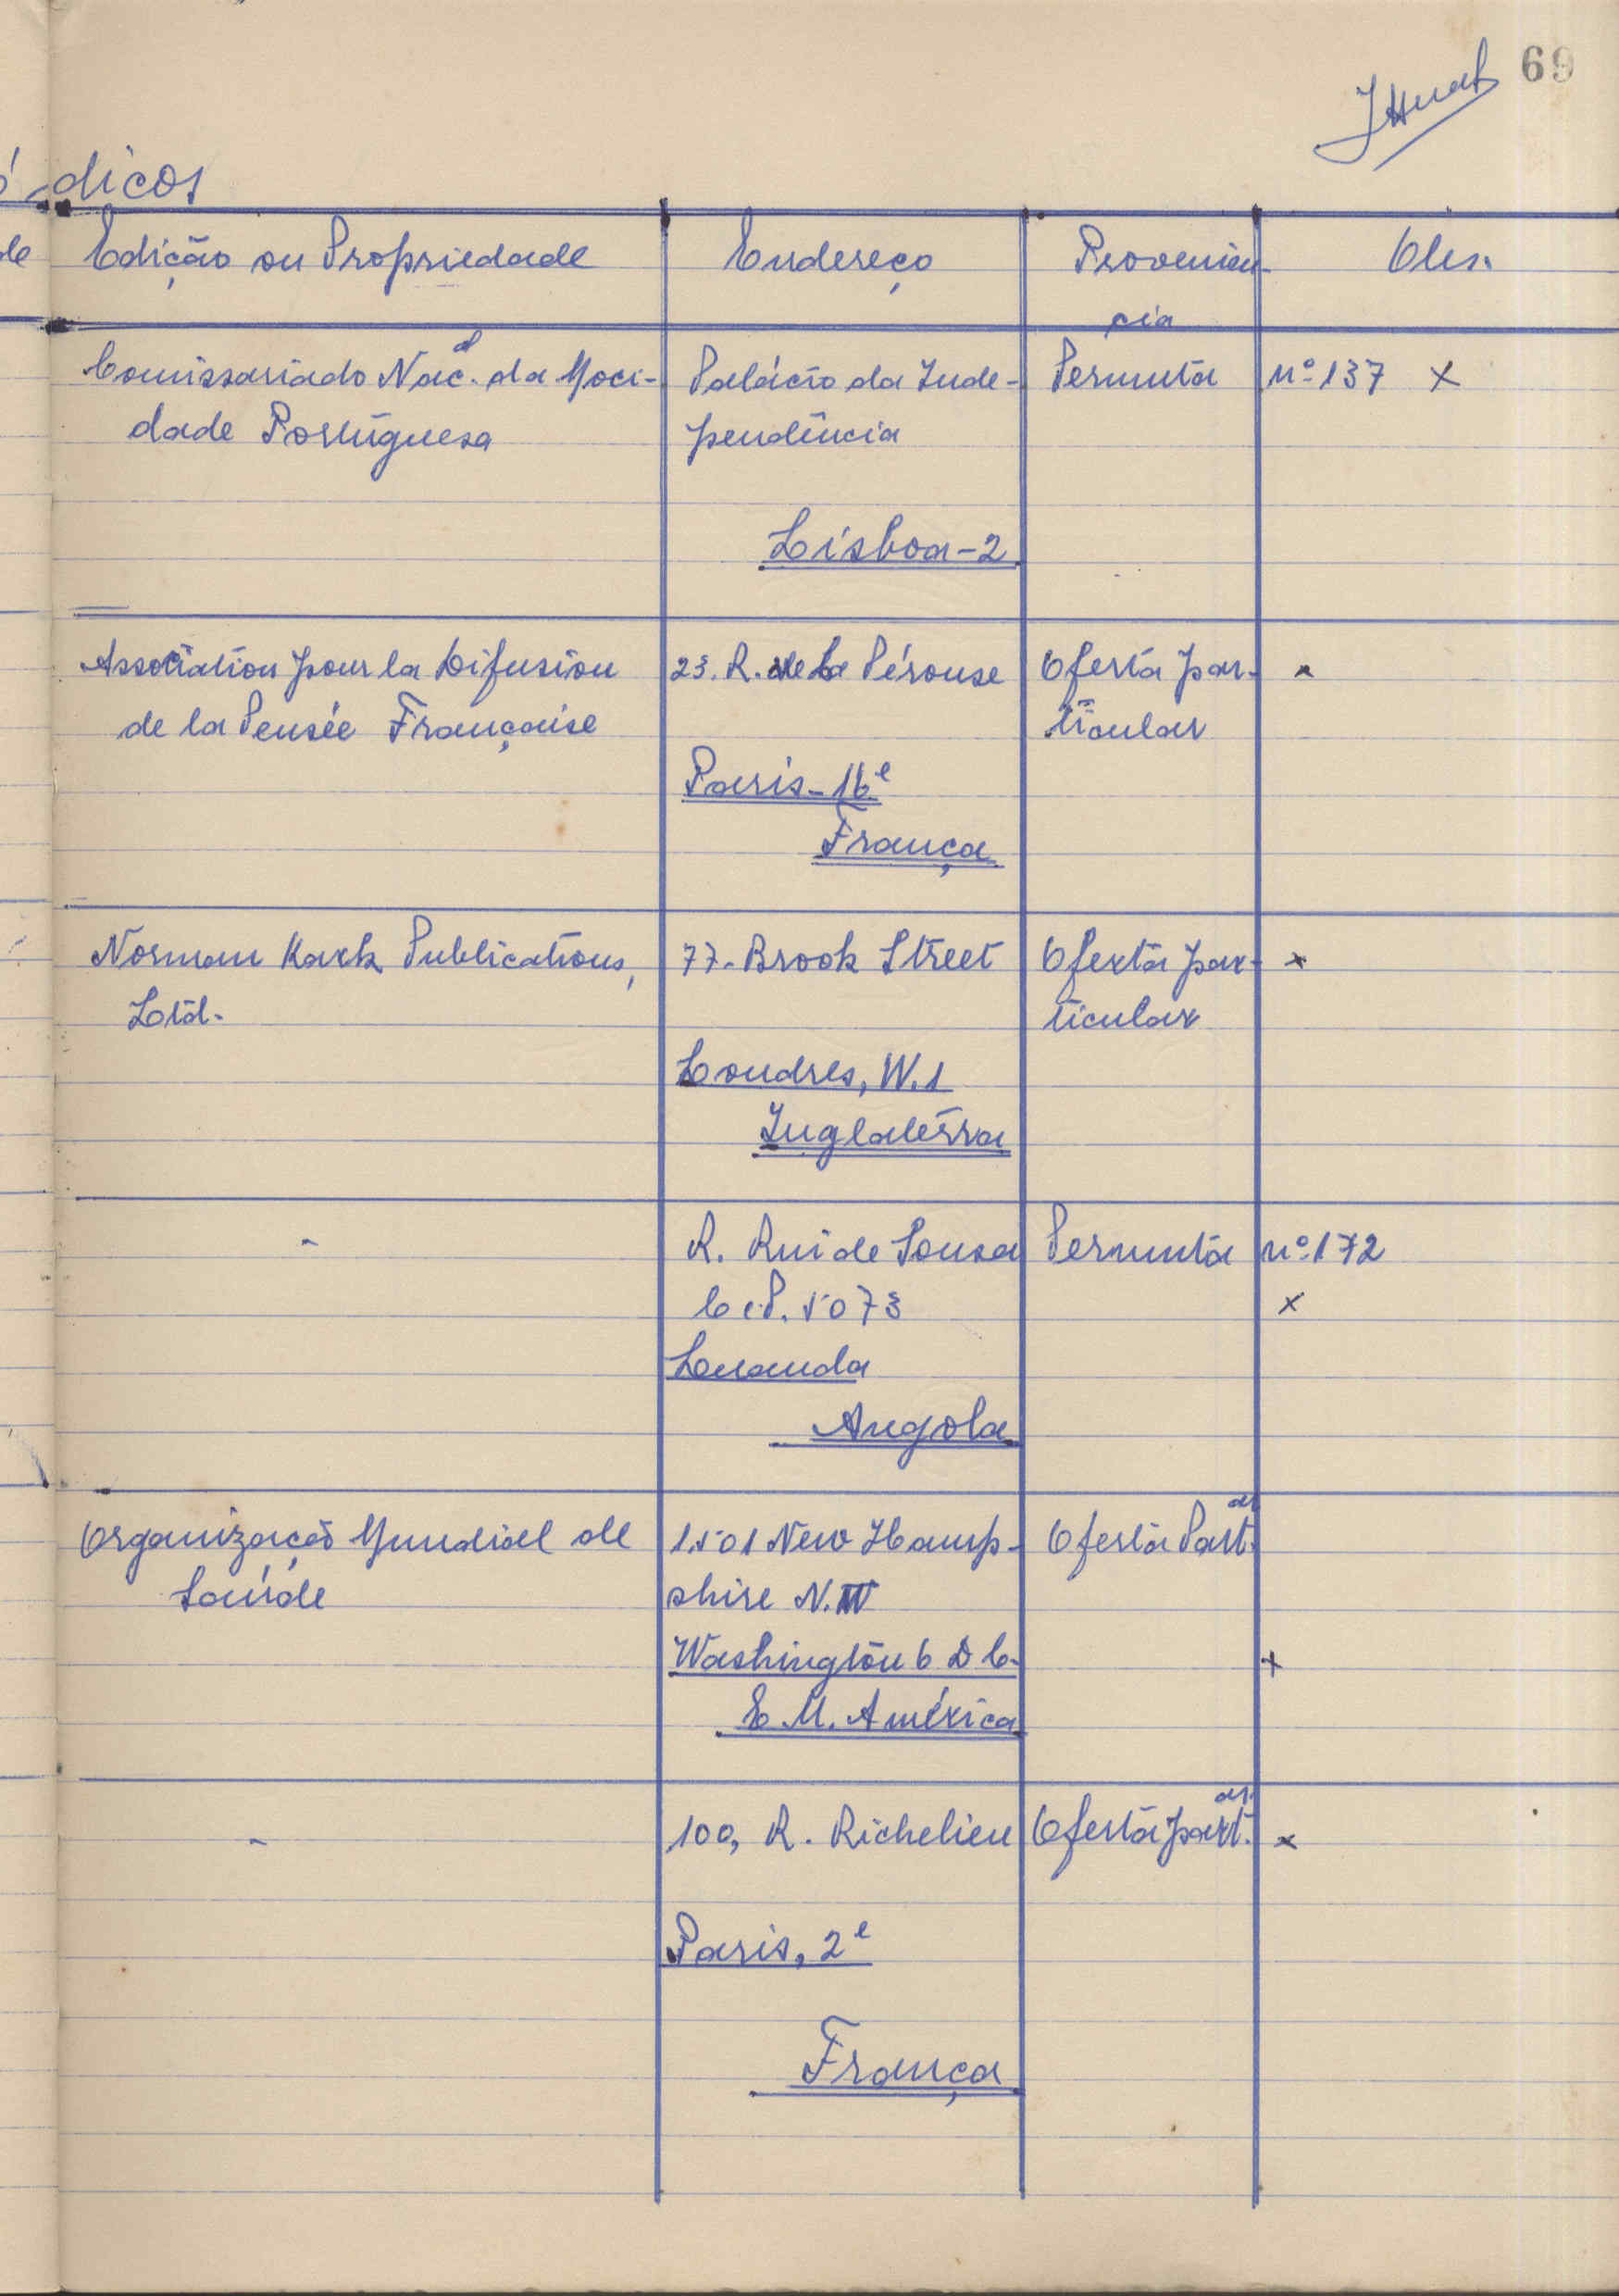 69
dicos
Edição ou Propriedade Endereço Proveniên- Obs.
cia
Comissariado Nac.al da Moci- Palácio da Inde- Permuta nº 137 x
dade Portuguesa pendência
Lisboa-2
Association pour la Difusion 23. R. de La Pérouse Oferta par- x
de la Pensée Française ticular
Paris-16e
França
Norman Kark Publications, 77- Brook Street Oferta par- x
Ltd. ticular
Londres, W.1
Inglaterra
- R. Rui de Sousa Permuta nº 172
C.P. 5073 x
Luanda
Angola
Organização Mundial de 1.501 New Hamp- Oferta Part.ar
Saúde shire N.W
Washington 6 D C. x
E. U. América
- 100, R. Richelieu Oferta part.ar x
Paris, 2e
França